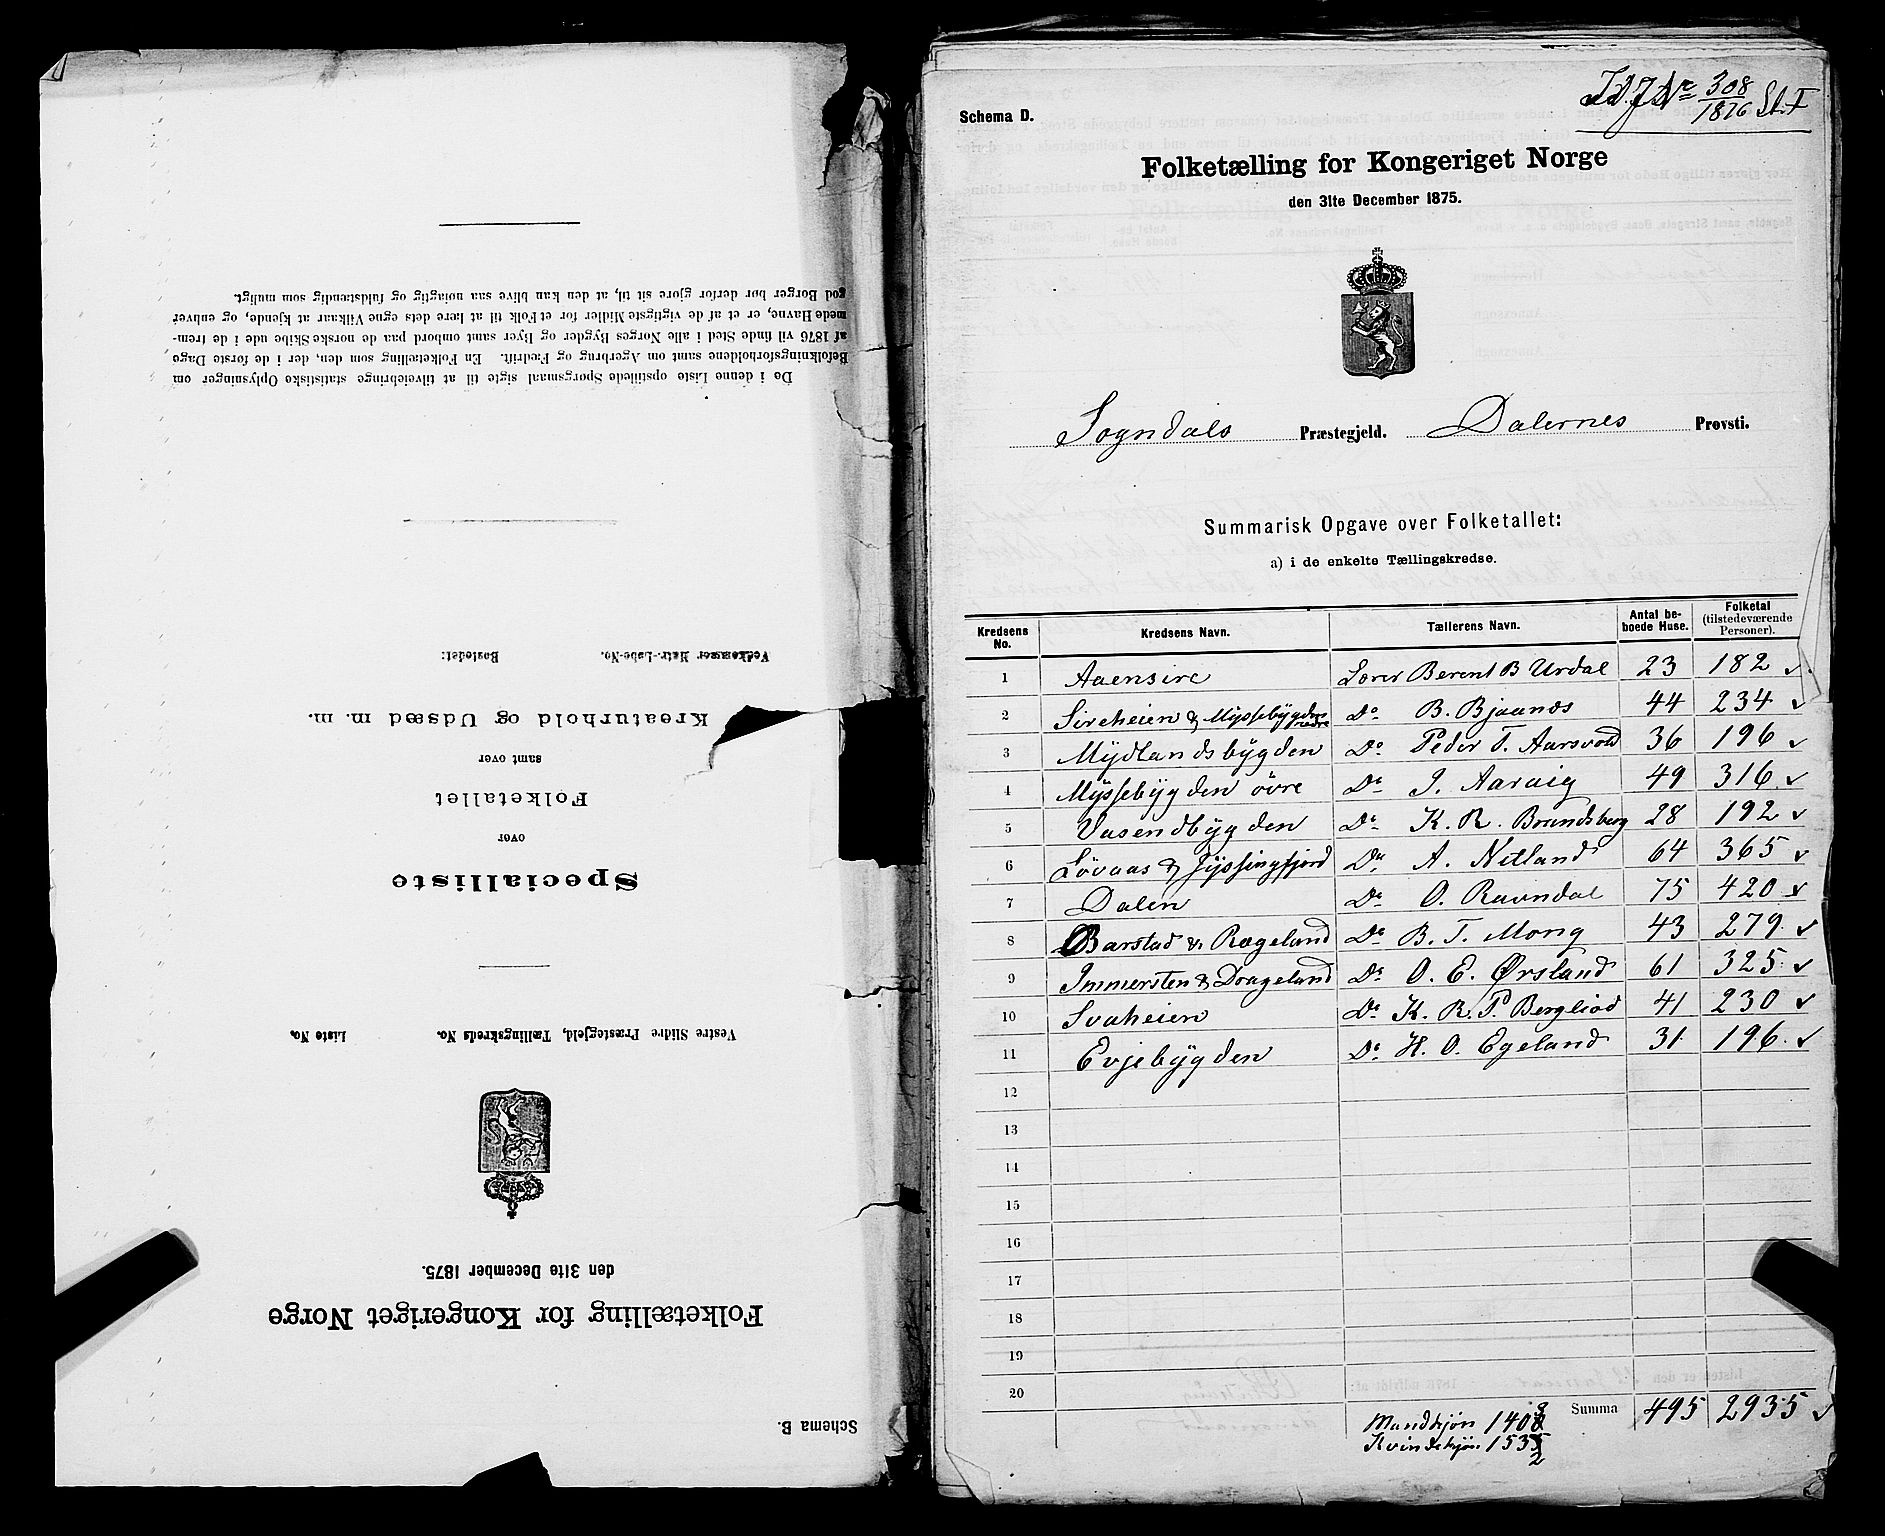 Schema B.
Folketælling for Kongeriget Norge
den 31te December 1875.
Vestre Slidre Præstegjeld, Tællingskreds No. Liste No.
Specialliste
over
Folketallet
samt over
Kreaturhold og Udsæd m. m.
Vedkommer Matr.-Løbe-No. Bostedet:
De i denne Liste opstillede Spørgsmaal sigte til at tilveiebringe statistiske Oplysninger om
Befolkningsforholdene samt om Agerbrug og Fædrift. En Folketælling som den, der i de første Dage
af 1876 vil finde Sted i alle Norges Bygder og Byer samt ombord paa de norske Skibe ude i de frem-
mede Havne, er et af de vigtigste Midler for et Folk til at lære dets egne Vilkaar at kjende, og enhver
god Borger bør derfor gjøre sit til, at den kan blive saa nøiagtig og fuldstændig som muligt.
Schema D.
No 308/1876
Folketælling for Kongeriget Norge
den 31te December 1875.
Sogndals Præstegjeld. Dalernes Provsti.
Summarisk Opgave over Folketallet:
a) i de enkelte Tællingskredse.
Kredsens No. Kredsens Navn. Tællerens Navn. Antal beboede Huse. Folketal (tilstedeværende Personer).
1 Aaensire Lærer Berent B Urdal 23 182
2 Sireheien & Myssebygden nedre Do B. Bjaanes 44 234
3 Mydlandsbygden Do Peder T. Aarsvold 36 196
4 Myssebygden övre Do J. Aarvig 49 316
5 Vasendbygden Do K. R. Brandsberg 28 192
6 Løvaas & Jyssingfjord Do A. Netland 64 365
7 Dalen Do O. Ravndal 75 420
8 Barstad & Rægeland Do B. T. Mong 43 279
9 Immersten & Drageland Do O. E. Ørsland 61 325
10 Svaheien Do K. R. P. Bergliod 41 230
11 Evjebygden Do H. O. Egeland 31 196
12
13
14
15
16
17
18
19
20
Summa 495 2935
Mandkjøn 1403
Kvindekjøn 1532